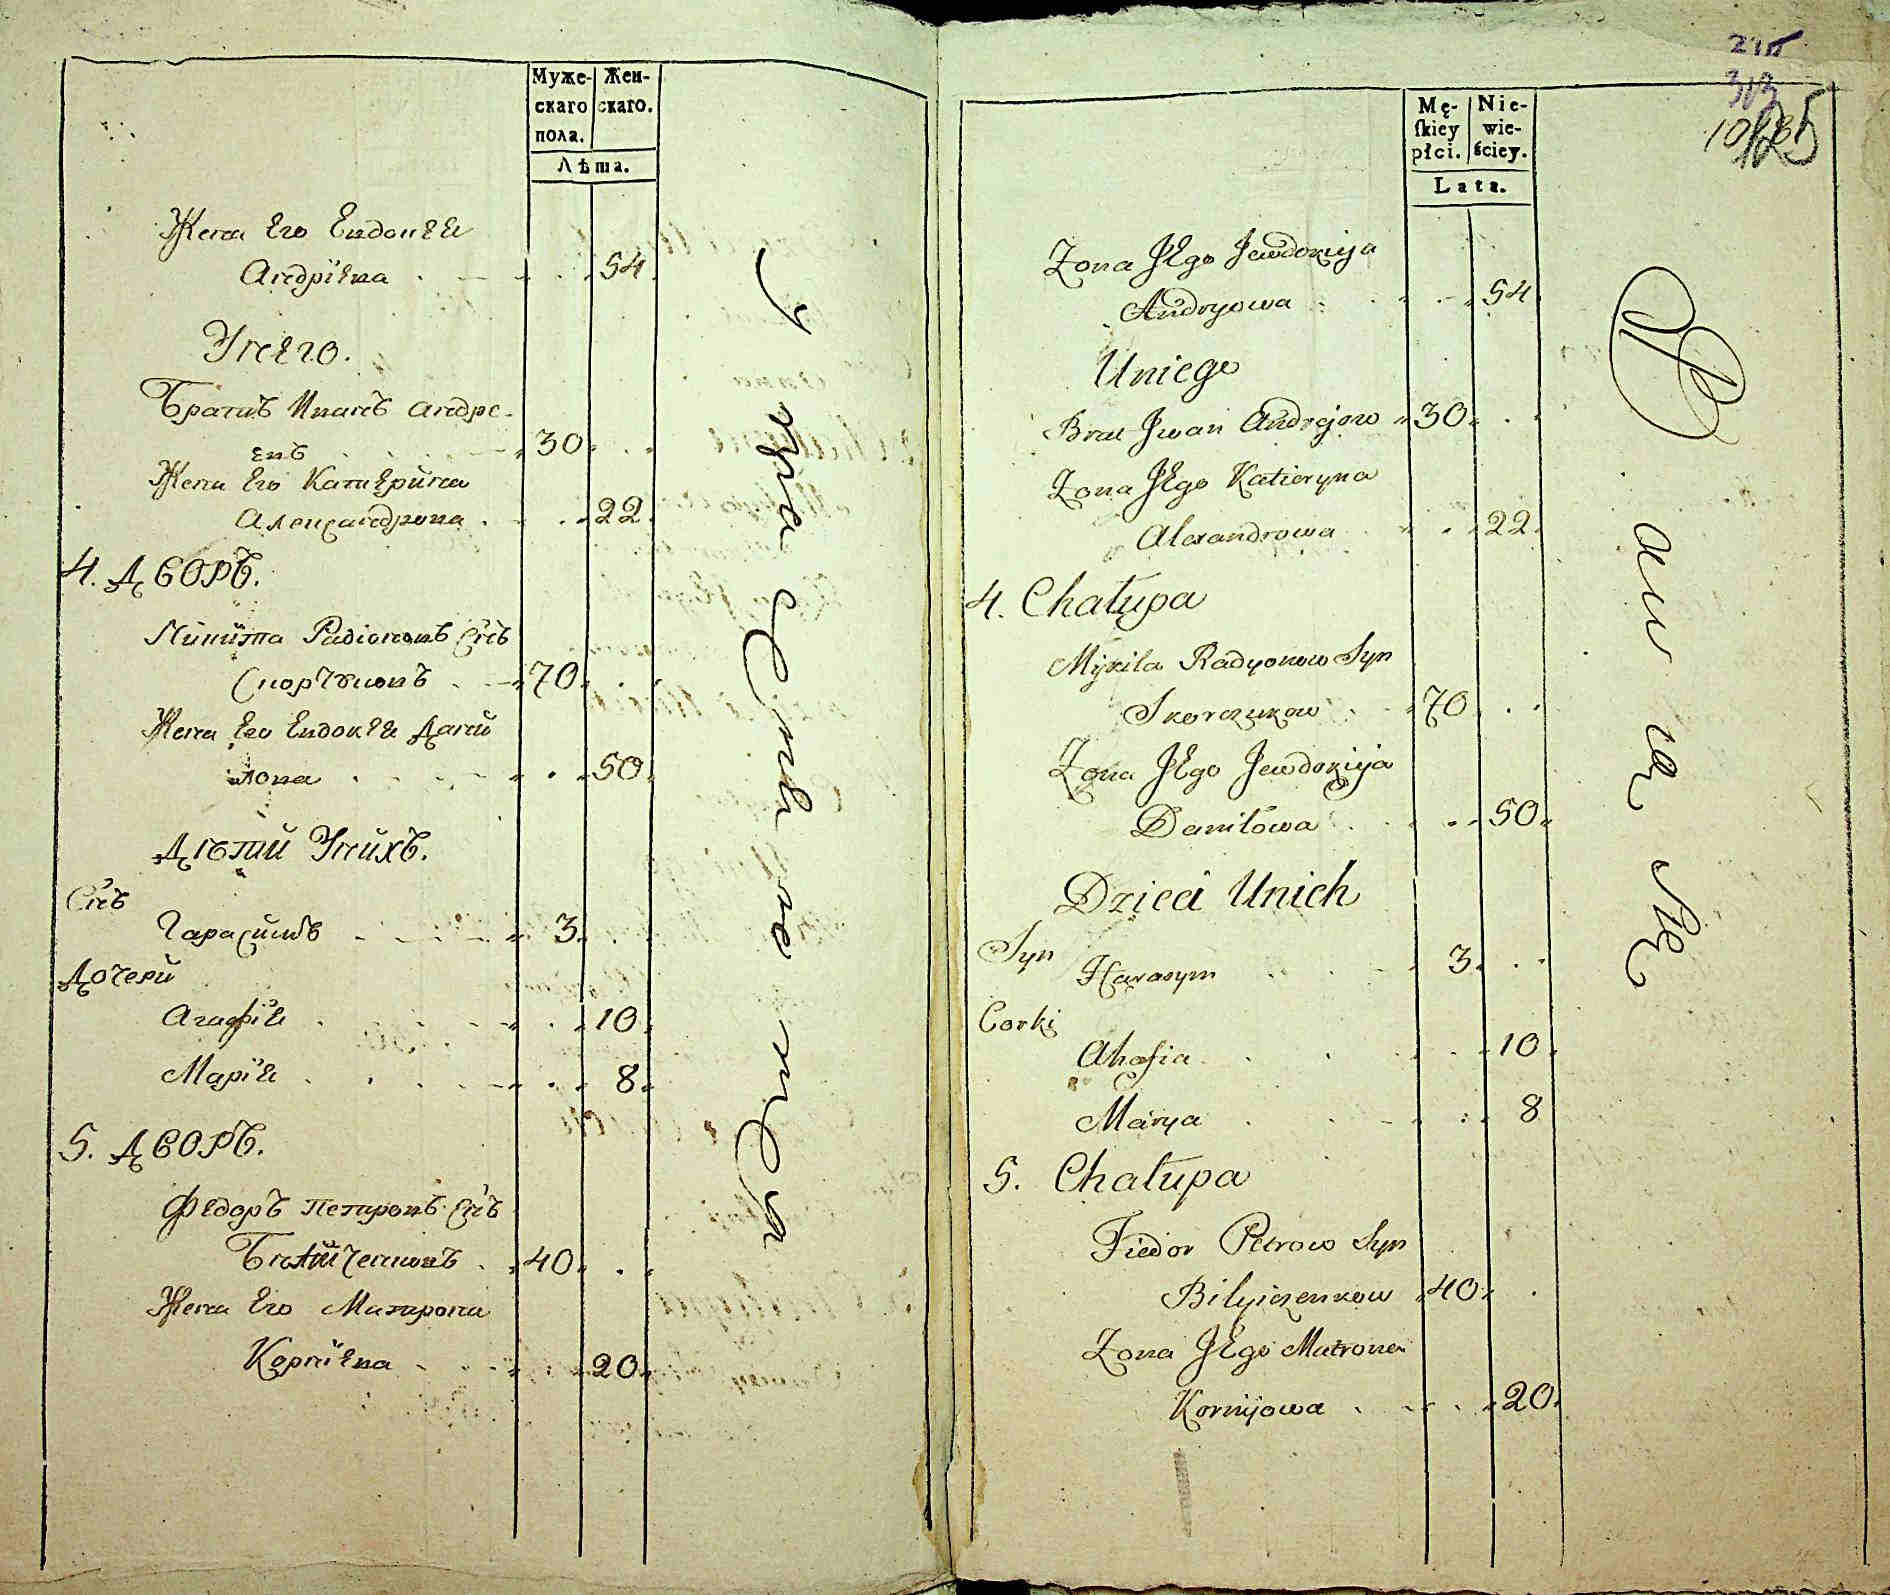 Муже-
скаго
пола.
Жен-
скаго.
Лѣта.
Жена Его Евдокѣя
Андрїева 54
Унего.
Братъ Иванъ Андре-
евъ 30
Жена Его Катерина
Александрова 22
4. Дворъ.
Никита Радіоновъ Сн҃ъ
Скорчуковъ 70
Жена Его Евдокѣя Дани
лова 50
Дѣти Унихъ.
Сн҃ъ
Гарасимъ 3
Дочери
Агафїя 10
Марїя 8
5. Дворъ.
Федоръ Петровъ Сн҃ъ
Биличенковъ 40
Жена Его Матрона
Корнїева 20
Mę-
ſkiey
płci.
Nie-
wie-
ściey.
Lata.
125
Zona JEgo Jewdokija
Andryowa 54
Uniego
Brat Jwan Andrejow 30
Zona JEgo Katieryna
Alexandrowa 22
4. Chałupa
Mykita Radyonow Syn
Skorczukow 70
Zona JEgo Jewdokija
Daniłowa 50
Dzieci Unich
Syn
Harasym 3
Corki
Ahafia 10
Marya 8
5. Chałupa
Fiedor Petrow Syn
Bilyiczenkow 40
Zona JEgo Matrona
Kornijowa 20